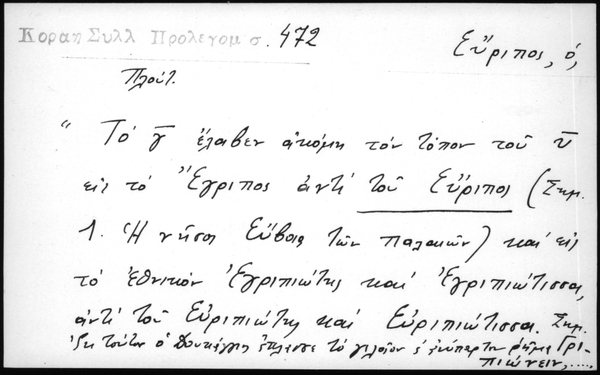 Κοραη Συλλ Προλεγομ σ. 472
Εὔριπος, ὁ,
Πλούτ.
“ Τό γ̅ ἔλαβεν ἀκόμη τόν τόπον τοῦ υ̅
εἰς τό Ἔγριπος ἀντί τοῦ Εὔριπος (Σημ.
1. Ἡ νῆσος Εὔβοια τῶν παλαιῶν) καί εἰς
τό ἐθνικόν Ἐγριπιώτης καί Ἐγριπιώτισσα,
ἀντί τοῦ Εὐριπιώτης καί Εὐριπιώτισσα. Σημ.
τούτου ὁ Δουκάγγιος ἔπλασσε τό γελοῖον ῥῆμα Γρι-
πιώνειν,.....